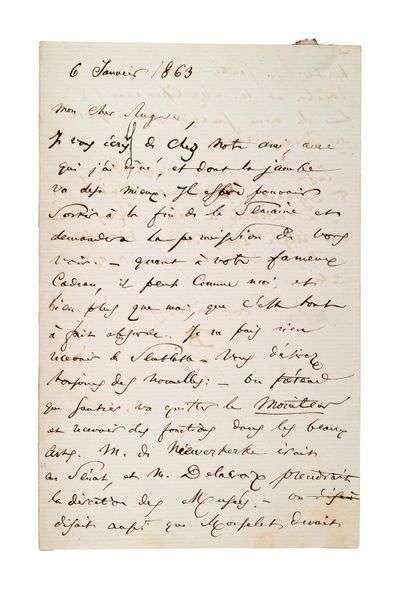 6 Janvier 1863
Mon cher Auguste,
Je vous écris de chez notre ami, avec
qui j'ai dîné, et dont la jambe
va déjà mieux. Il espère pouvoir
sortir à la fin de la semaine et
demandera la permission de vous
voir. — quant à votre fameux
cadeau, il peut comme moi, et
bien plus que moi, que c'est tout
à fait absurde. Je ne puis rien
recevoir de semblable — Vous désirez
toujours des nouvelles : — On prétend
que Gautier va quitter le Moniteur
et recevoir des fonctions dans les beaux
arts. M. de Niewerkerke irait
au Sénat, et M. Delacroix prendrait
la direction des Musées. — on
disait aussi que devait